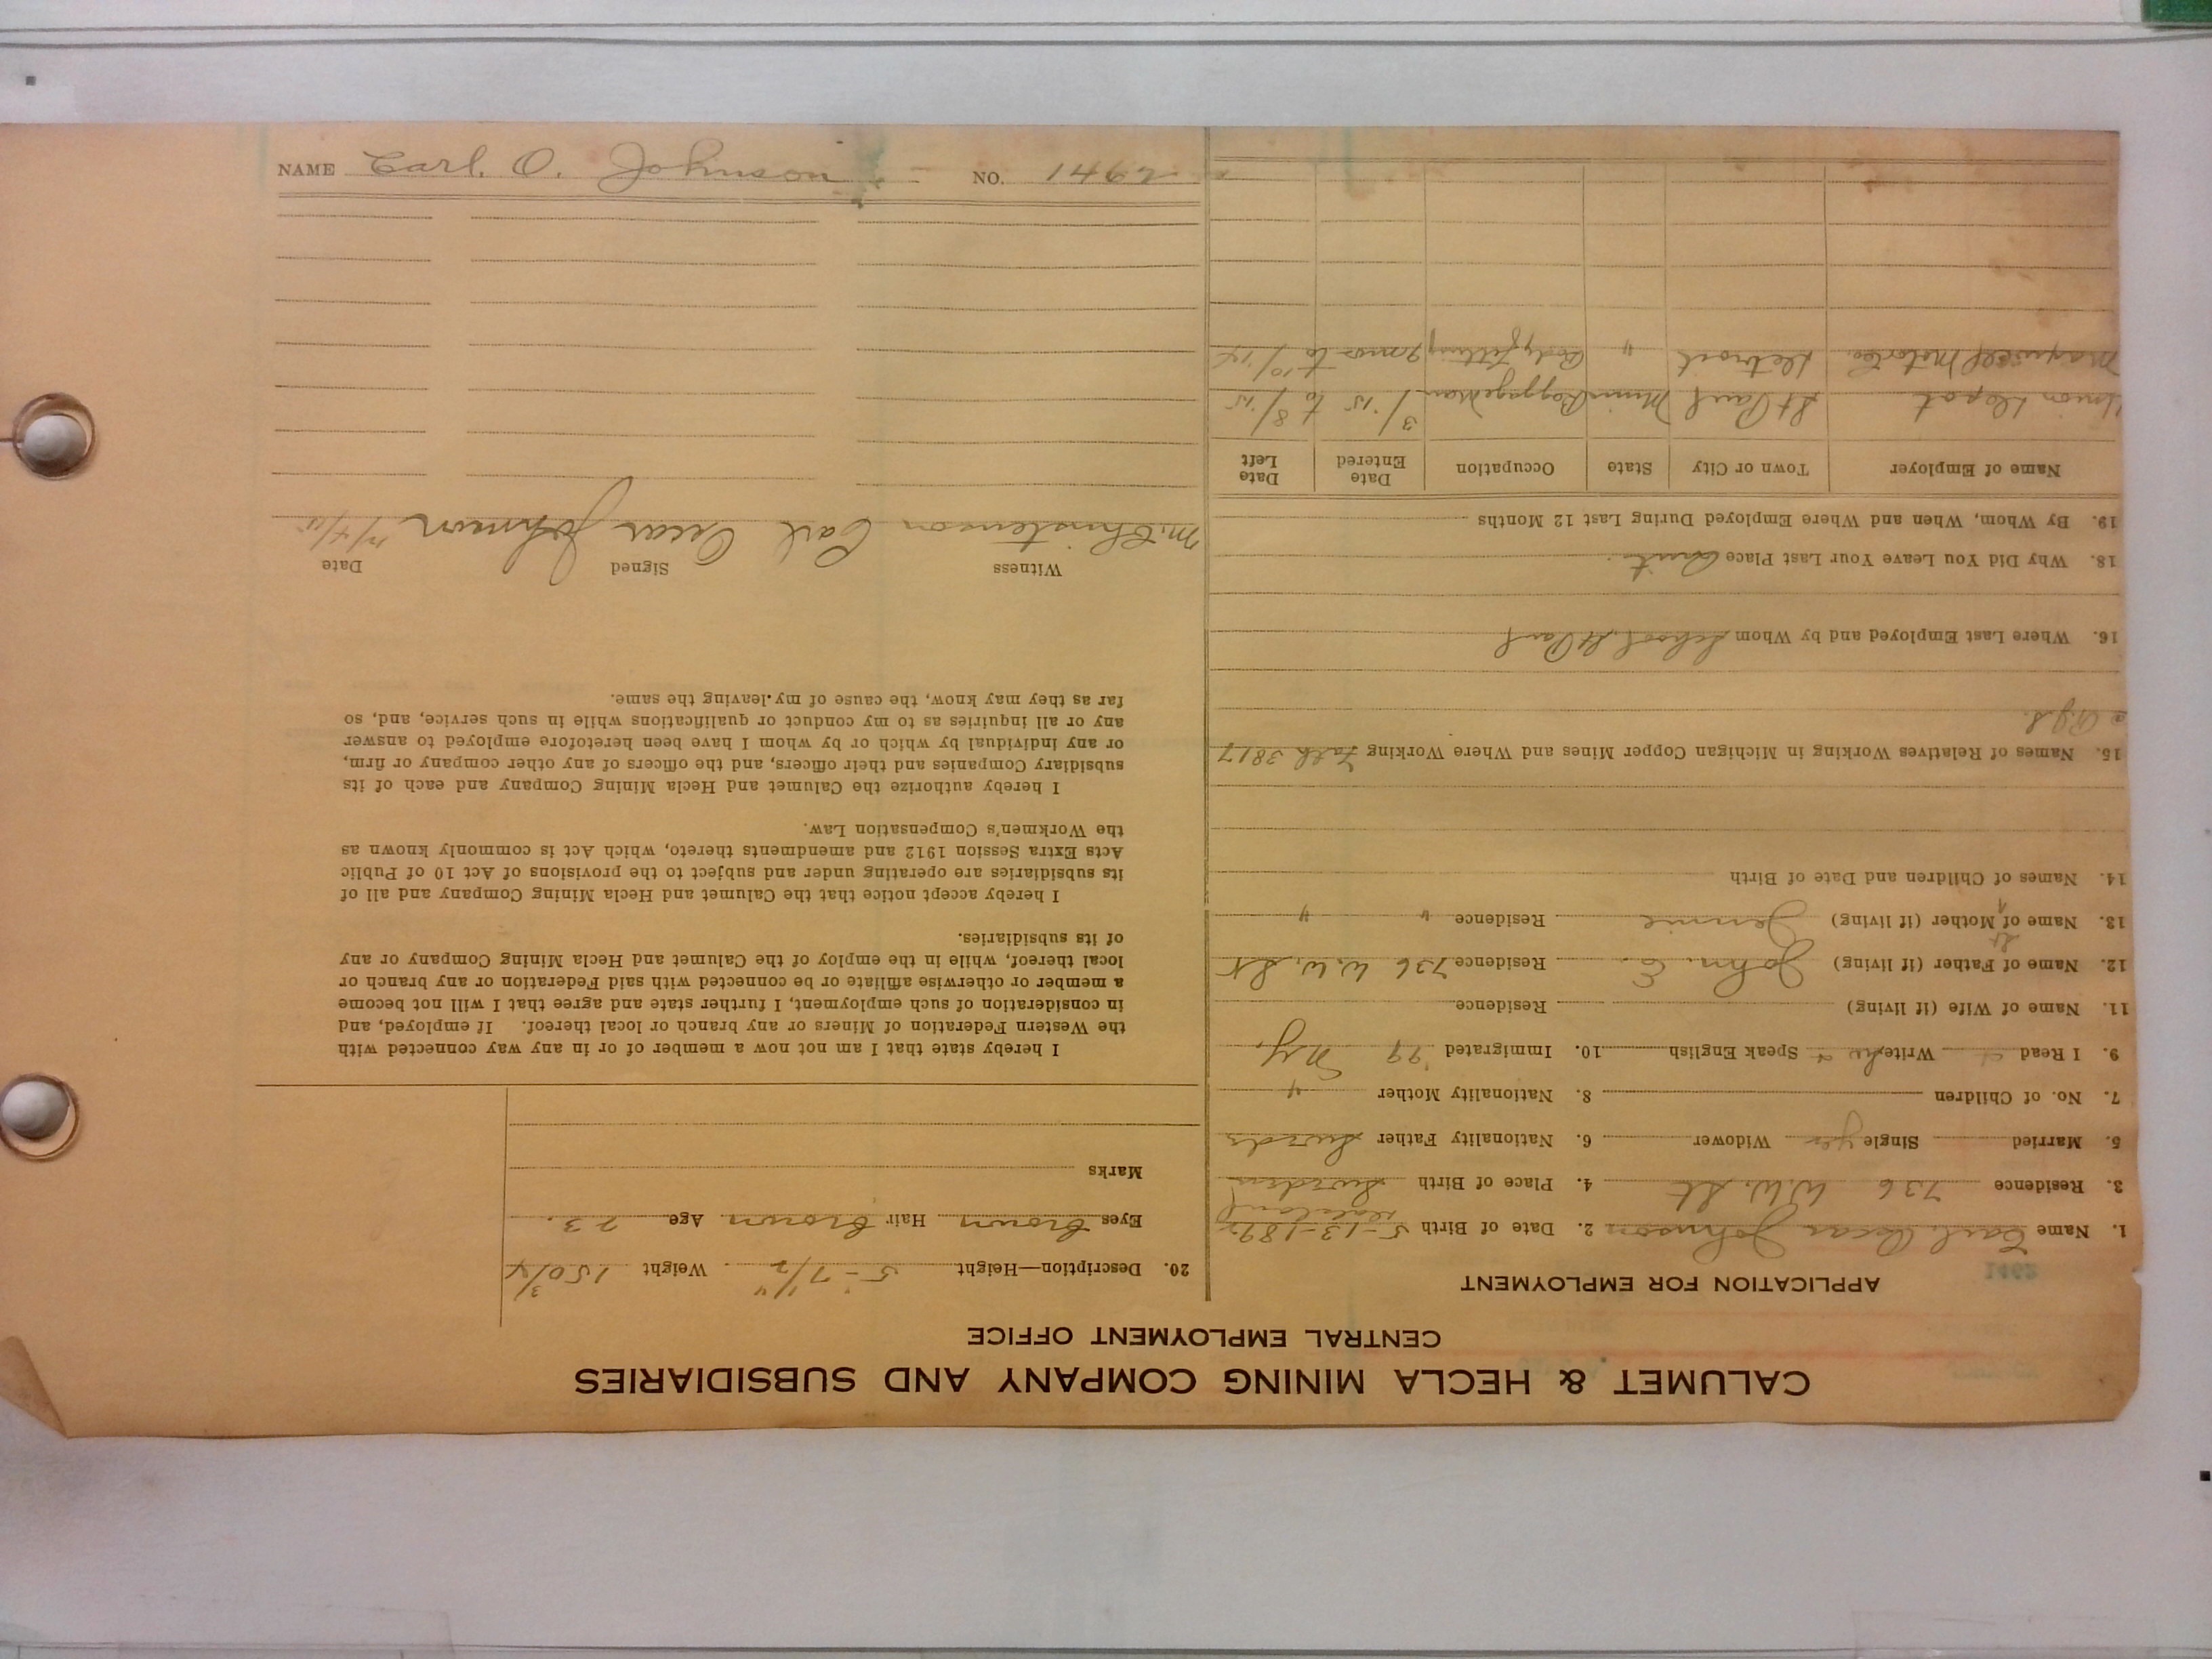 CALUMET & HECLA MINING COMPANY AND SUBSIDIARIES
CENTRAL EMPLOYMENT OFFICE
APPLICATION FOR EMPLOYMENT
1. Name Carl Oscar Johnson 2. Date of Birth 5-13-1892
3. Residence 736 W.W. St 4. Place of Birth Sweden
5. Married Single yes Widower 6. Nationality Father Swede
7. No. of Children 8. Nationality Mother "
9. I Read Write Speak English 10. Immigrated '99 N.Y.
11. Name of Wife (if living) Residence
12. Name of Father (if living) John E. Residence 736 W.W. St
13. Name of Mother (if living) Jennie Residence " "
14. Names of Children and Date of Birth
15. Names of Relatives Working in Michigan Copper Mines and Where Working Fath 3817
16. Where Last Employed and by Whom School St Paul
18. Why Did You Leave Your Last Place Quit
19. By Whom, When and Where Employed During Last 12 Months
Name of Employer Town or City State Occupation Date Entered Date Left
Union Depot St Paul Minn Baggageman 3/15 to 8/15
Maxwell Motor Co. Detroit " Body fitting 9 mos to 10/14
20. Description—Height 5-7 1/2" Weight 150 3/4
Eyes brown Hair brown Age 23.
Marks
I hereby state that I am not now a member of or in any way connected with
the Western Federation of Miners or any branch or local thereof. If employed, and
in consideration of such employment, I further state and agree that I will not become
a member or otherwise affiliate or be connected with said Federation or any branch or
local thereof, while in the employ of the Calumet and Hecla Mining Company or any
of its subsidiaries.
I hereby accept notice that the Calumet and Hecla Mining Company and all of
its subsidiaries are operating under and subject to the provisions of Act 10 of Public
Acts Extra Session 1912 and amendments thereto, which Act is commonly known as
the Workmen's Compensation Law.
I hereby authorize the Calumet and Hecla Mining Company and each of its
subsidiary Companies and their officers, and the officers of any other company or firm,
or any individual by which or by whom I have been heretofore employed to answer
any or all inquiries as to my conduct or qualifications while in such service, and, so
far as they may know, the cause of my leaving the same.
Witness Signed Date
M. Christenson Carl Oscar Johnson
NAME Carl. O. Johnson NO. 1462